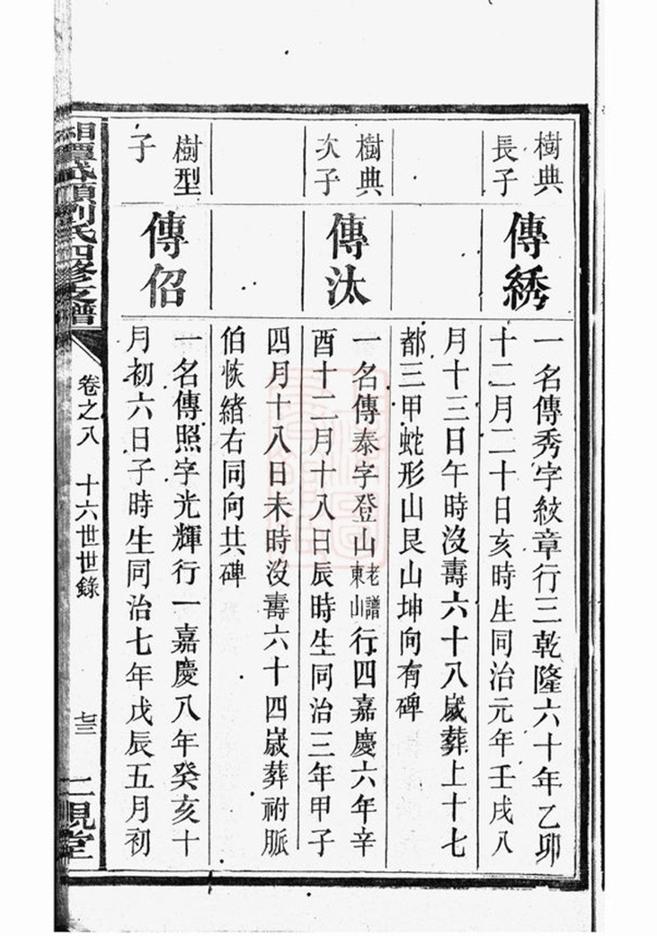 樹典
長子
傳綉
一名傳秀字紋章行三乾隆六十年乙卯
十二月二十日亥時生同治元年壬戌八
月十三日午時沒壽六十八歲葬上十七
都三甲蛇形山艮山坤向有碑
樹典
次子
傳汰
一名傳泰字登山老譜東山行四嘉慶六年辛
酉十二月十八日辰時生同治三年甲子
四月十八日未時沒壽六十四歲葬祔脈
伯恢緒右同向共碑
樹型
子
傳佋
一名傳照字光輝行一嘉慶八年癸亥十
月初六日子時生同治七年戊辰五月初
劉氏四修支譜
卷之八 十六世世錄
七三